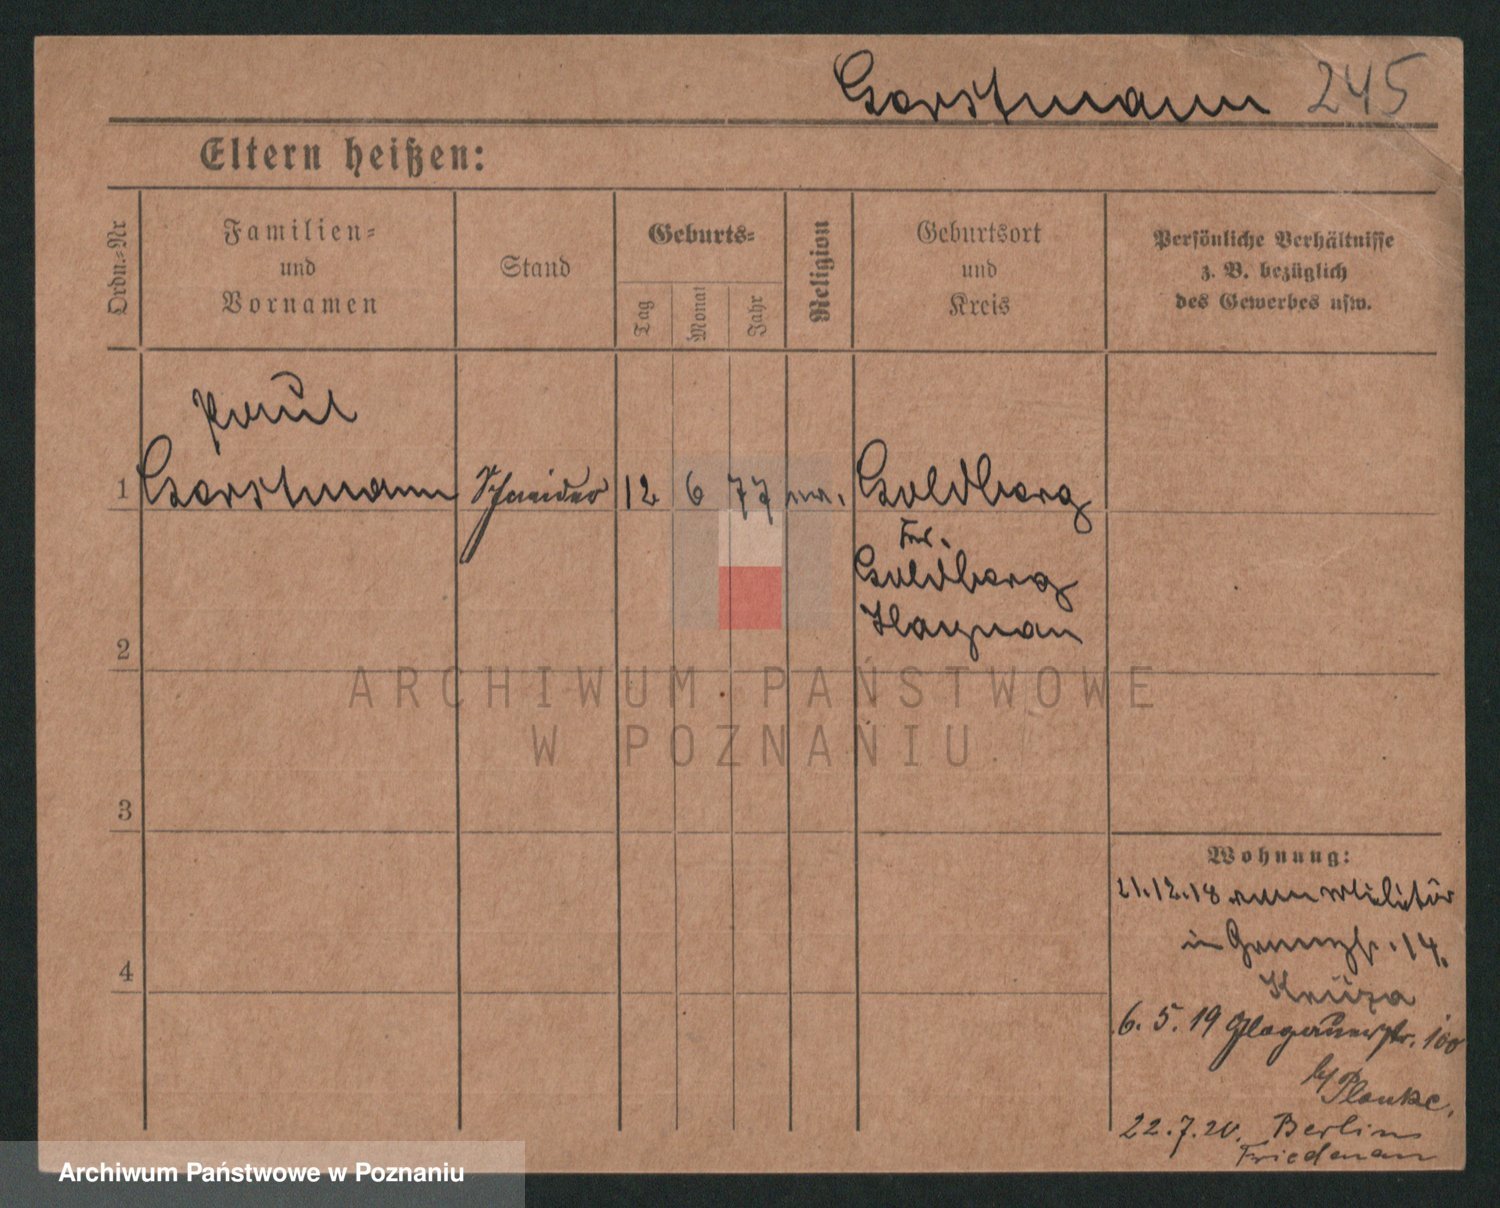 Gerstmann 245
Eltern heißen:
Ordn.=Nr
Familien=
und
Vornamen
Stand
Geburts=
Tag
Monat
Jahr
Religion
Geburtsort
und
Kreis
Persönliche Verhältnisse
z. B. bezüglich
des Gewerbes usw.
Paul
1 Gerstmann Schneider 12 6 77 Goldberg
Goldberg
Haynau
2
3
4
ARCHIWUM PAŃSTWOWE
W POZNANIU
Wohnung:
21.12.18 vom Militär
in 14.
6. 5. 19 Glogauerstr. 100
b/ Planke.
22.7.20. Berlin
Friedenau
Archiwum Państwowe w Poznaniu